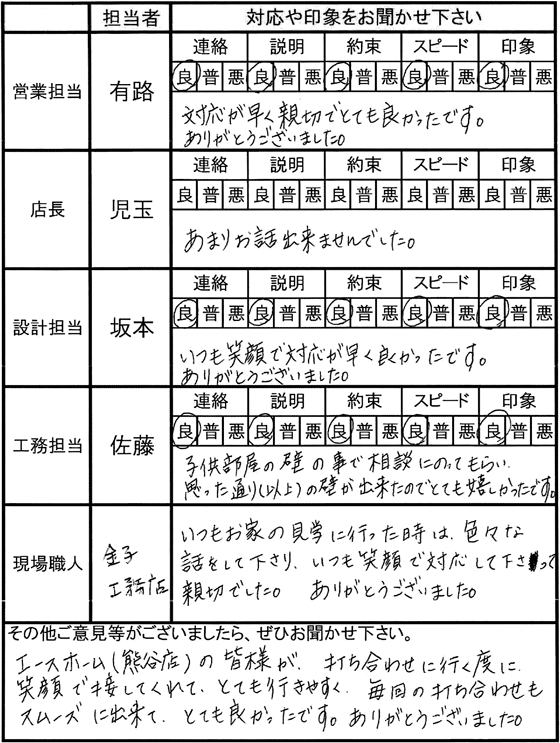 担当者 対応や印象をお聞かせ下さい
営業担当 有路
連絡 説明 約束 スピード 印象
良 普 悪 良 普 悪 良 普 悪 良 普 悪 良 普 悪
対応が早く親切でとても良かったです。
ありがとうございました。
店長 児玉
連絡 説明 約束 スピード 印象
良 普 悪 良 普 悪 良 普 悪 良 普 悪 良 普 悪
あまりお話出来ませんでした。
設計担当 坂本
連絡 説明 約束 スピード 印象
良 普 悪 良 普 悪 良 普 悪 良 普 悪 良 普 悪
いつも笑顔で対応が早く良かったです。
ありがとうございました。
工務担当 佐藤
連絡 説明 約束 スピード 印象
良 普 悪 良 普 悪 良 普 悪 良 普 悪 良 普 悪
子供部屋の壁の事で相談にのってもらい
思った通り(以上)の壁が出来たのでとても嬉しかったです。
現場職人 金子
工務店
いつもお家の見学に行った時は、色々な
話をして下さり、いつも笑顔で対応して下さって
親切でした。 ありがとうございました。
その他ご意見等がございましたら、ぜひお聞かせ下さい。
エースホーム(熊谷店)の皆様が、打ち合わせに行く度に
笑顔で接してくれて、とても行きやすく、毎回の打ち合わせも
スムーズに出来て、とても良かったです。ありがとうございました。